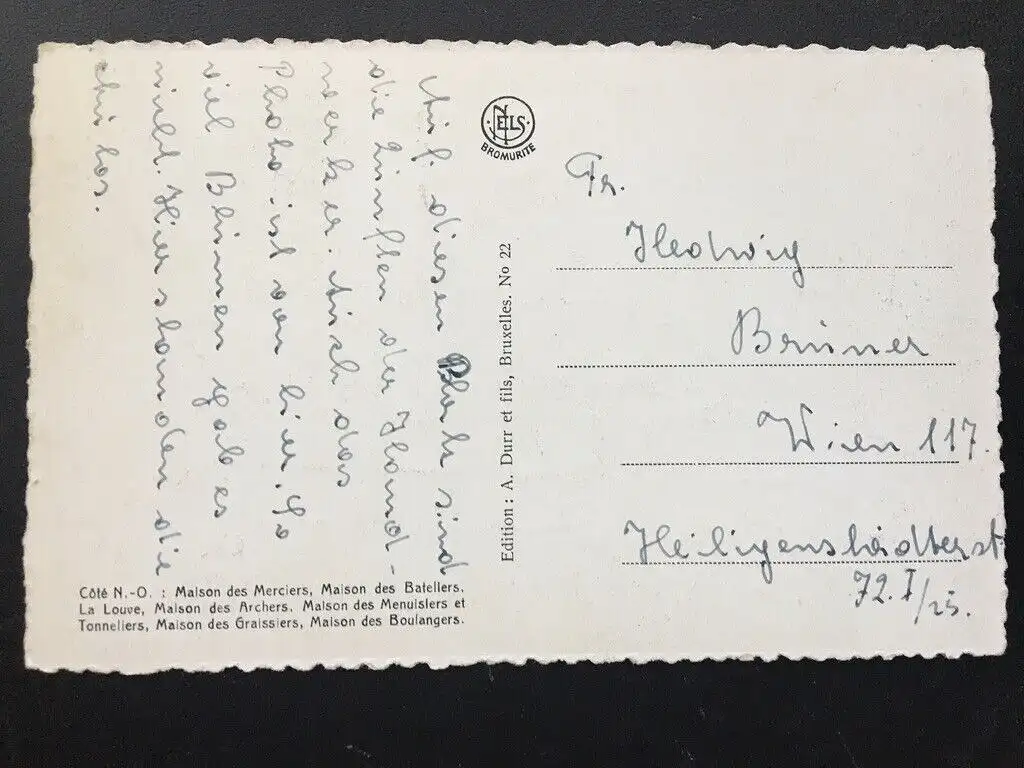 Auf diesen Platz sind
die Zünften der Hand-
werker. Auch das
Photo ist von hier. So
viel Blumen gab es
nicht. Hier standen die
Autos.
NELS
BROMURITE
Edition : A. Durr et fils, Bruxelles. No 22
Fr.
Hedwig
Bruner
Wien 117.
Heiligenstädterst
72.I/25.
Côté N.-O. : Maison des Merciers, Maison des Bateliers.
La Louve, Maison des Archers. Maison des Menuisiers et
Tonneliers, Maison des Graissiers, Maison des Boulangers.